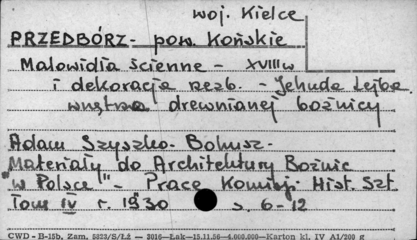 woj. Kielce
PRZEDBÓRZ - pow. Końskie
Malowidła ścienne - XVIII w
i dekoracja rzeźb. - Jehuda Lejba
wnętrza drewnianej bożnicy
Adam Szyszko-Bohusz -
Materiały do Architektury Bożnic
"w Polsce" - Prace Komisji Hist. Szt
Tom IV r. 1930 s. 6-12
CWD - B-15b. Zam. 5823/S/Łż — 3016—Łak—15.11.50—4.000.000—Karton kl. IV A1/200 g